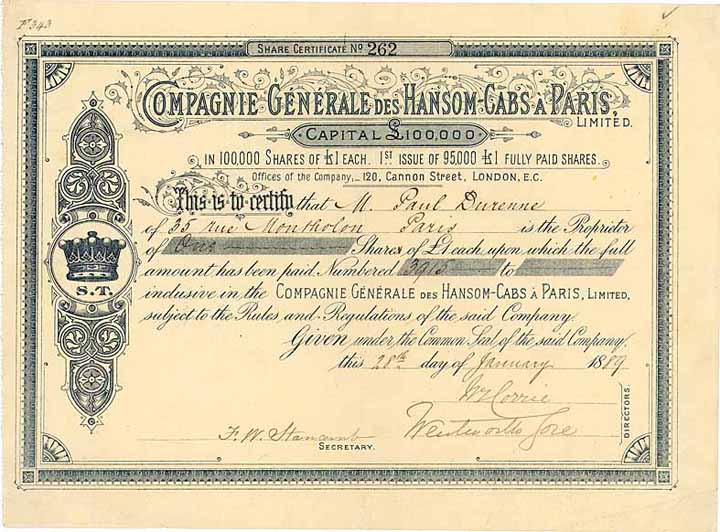 Fo 343
SHARE CERTIFICATE No 262
COMPAGNIE GÉNÉRALE DES HANSOM-CABS À PARIS,
LIMITED.
CAPITAL £100,000
IN 100,000 SHARES OF £1 EACH. 1ST ISSUE OF 95,000 £1 FULLY PAID SHARES.
Offices of the Company, 120, CANNON STREET, LONDON, E.C.
This is to certify that M. Paul Durenne
of 35 rue Montholon Paris is the Proprietor
of One Shares of £1 each upon which the full
amount has been paid Numbered 3915 to
inclusive in the COMPAGNIE GÉNÉRALE DES HANSOM-CABS À PARIS, LIMITED,
subject to the Rules and Regulations of the said Company.
Given under the Common Seal of the said Company
this 28th day of January 1889
S.T.
Wentworth Gore
DIRECTORS.
F. W. Stancomb
SECRETARY.